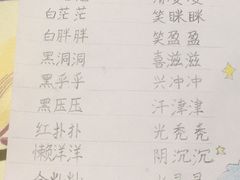 白茫茫 笑眯眯
白胖胖 笑盈盈
黑洞洞 喜滋滋
黑乎乎 兴冲冲
黑压压 汗津津
红扑扑 光秃秃
懒洋洋 阴沉沉